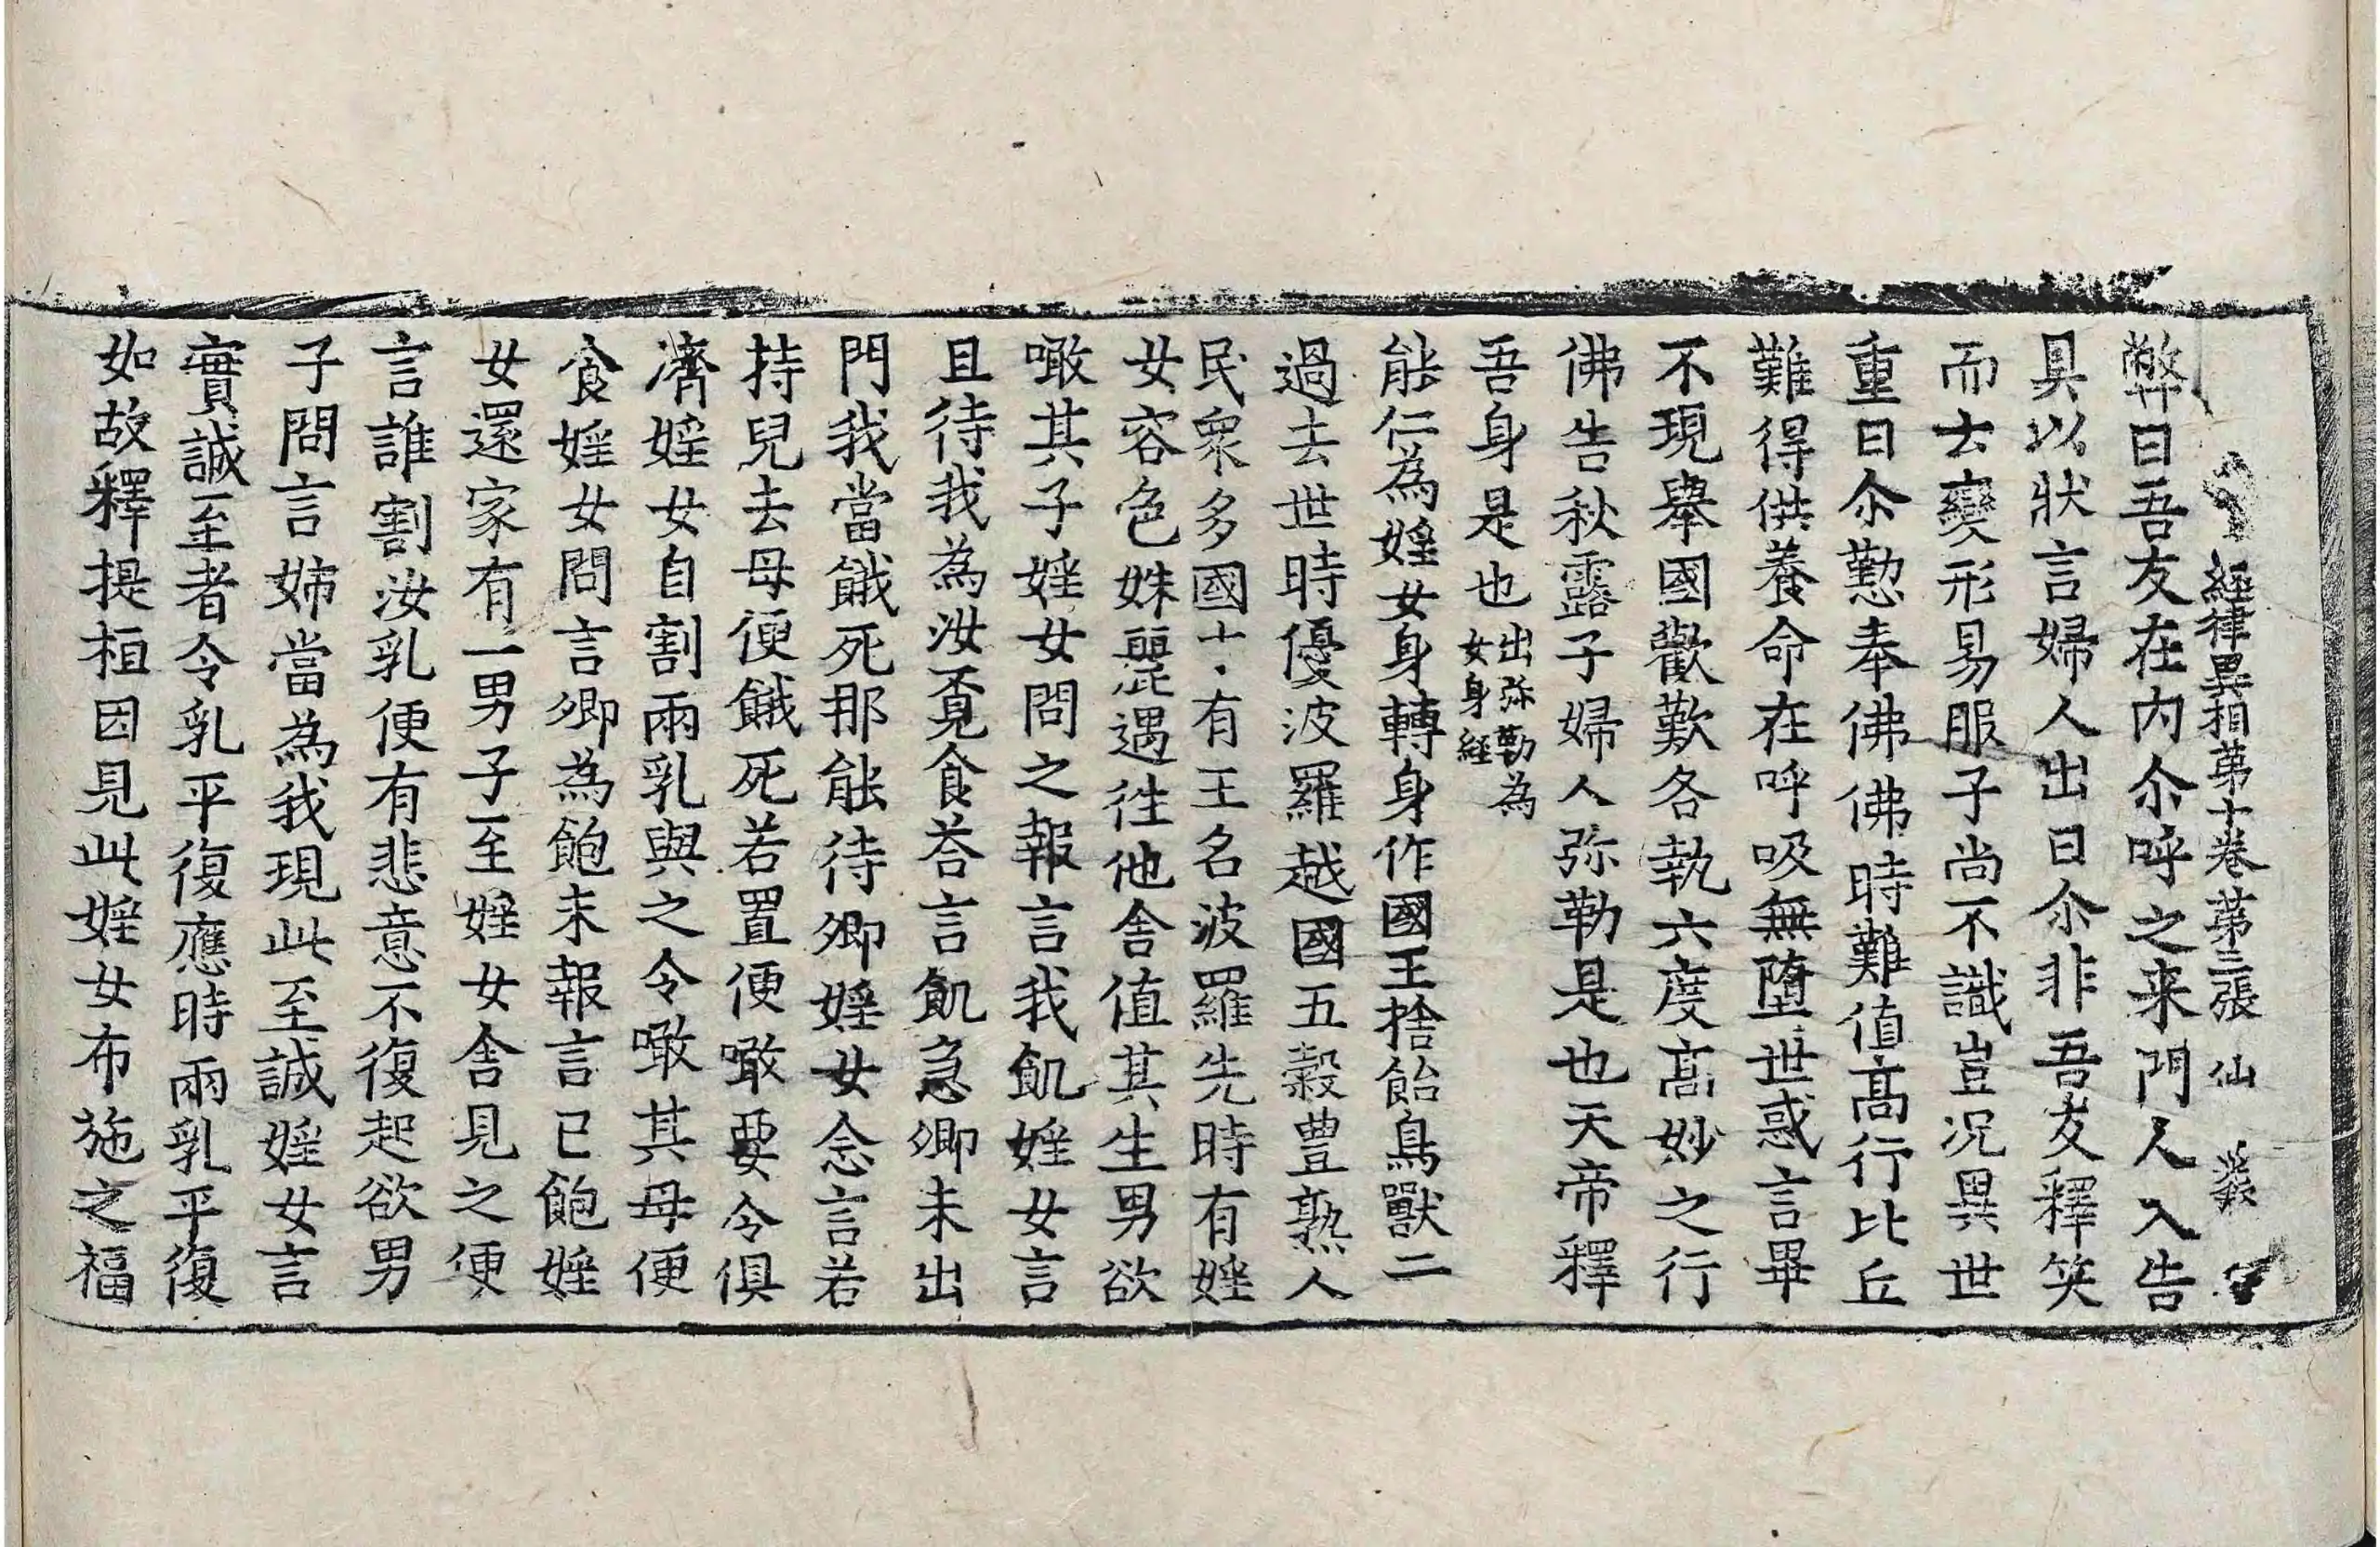 経律異相苐十卷苐三張 仙
弊曰吾友在内尒呼之来門人入告
具以狀言婦人出曰尒非吾友釋笑
而去變形易服子尚不識豈況異世
重曰尒懃奉佛佛時難值髙行比丘
難得供養命在呼吸無墮世惑言畢
不現舉國歡歎各執六度髙妙之行
佛告秋露子婦人弥勒是也天帝釋
吾身是也出弥勒為女身経
能仁為婬女身轉身作國王捨飴鳥獸二
過去世時優波羅越國五穀豊熟人
民衆多國土有王名波羅先時有婬
女容色姝麗遇徃他舍值其生男欲
噉其子婬女問之報言我飢婬女言
且待我為汝覔食荅言飢急卿未出
門我當餓死那能待卿婬女念言若
持兒去母便餓死若置便噉要令俱
濟婬女自割兩乳與之令噉其母便
食婬女問言卿為飽未報言已飽婬
女還家有一男子至婬女舍見之便
言誰割汝乳便有悲意不復起欲男
子問言姉當為我現此至誠婬女言
實誠至者令乳平復應時兩乳平復
如故釋提桓因見此婬女布施之福